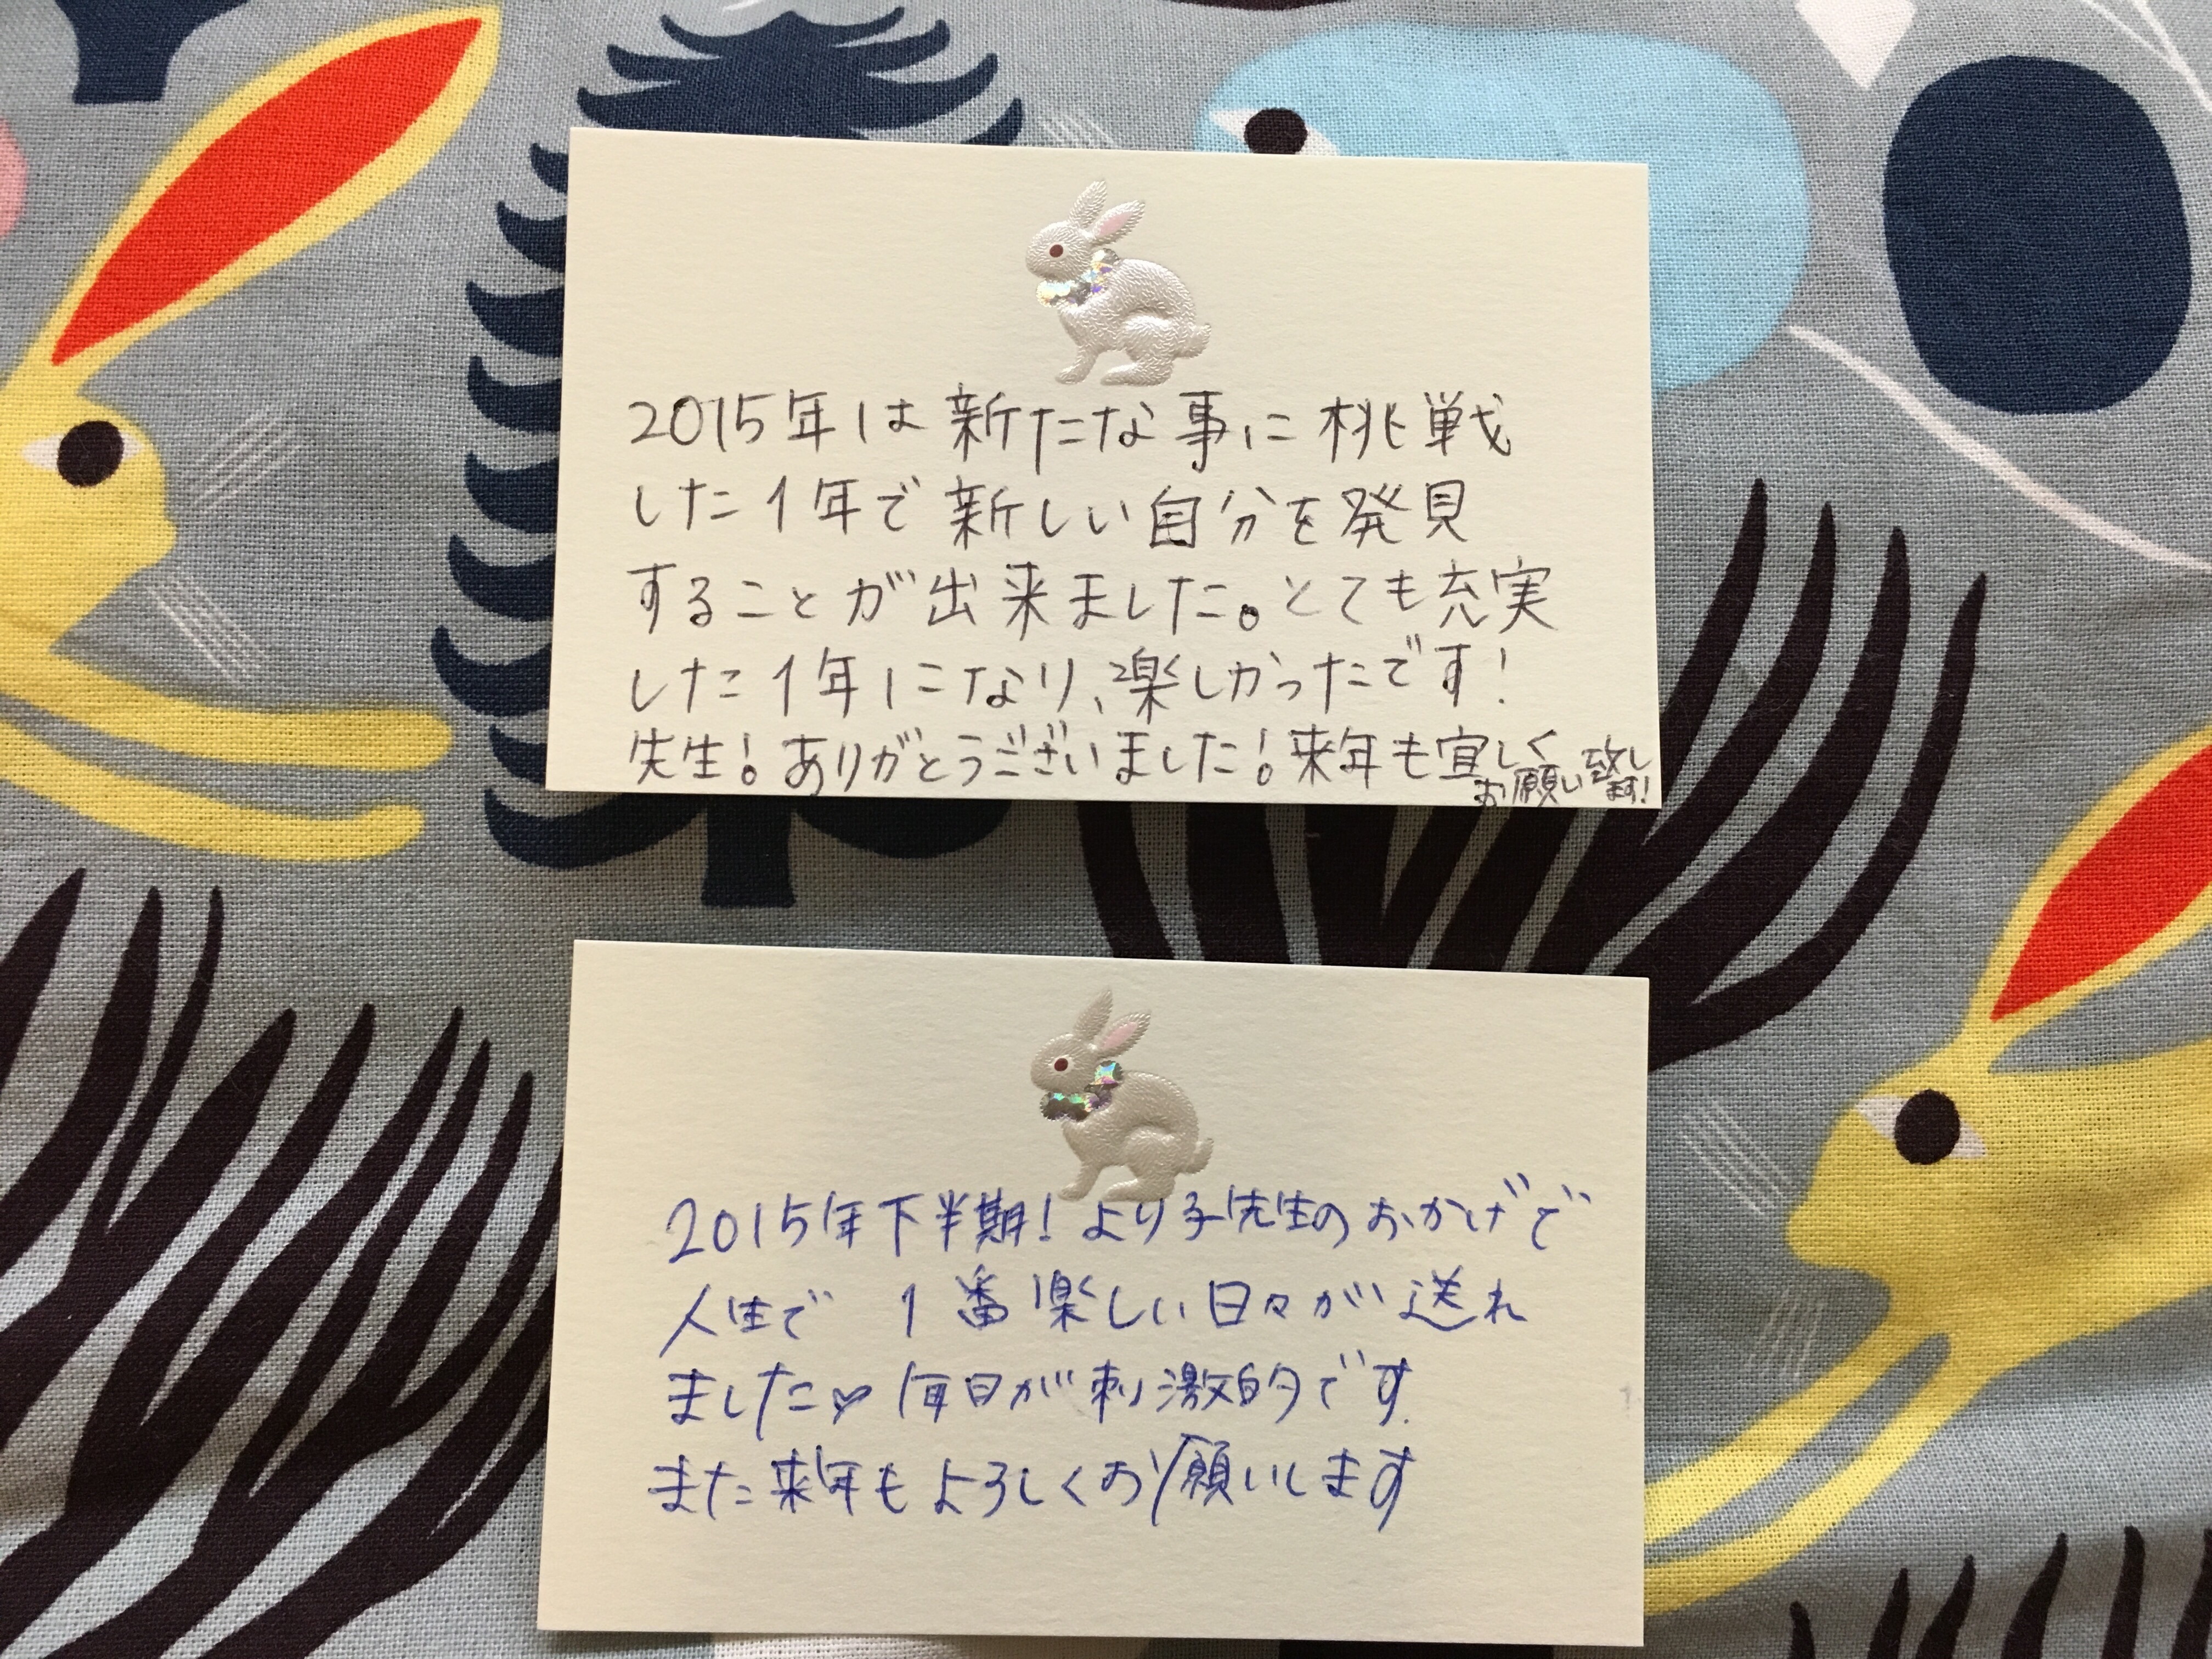 2015年は新たな事に挑戦
した1年で新しい自分を発見
することが出来ました。とても充実
した1年になり、楽しかったです!
先生!ありがとうございました!来年も宜しく
お願い致し
ます!
2015年下半期!より子先生のおかげで
人生で 1番楽しい日々が送れ
ました♡毎日が刺激的です.
また来年もよろしくお願いします